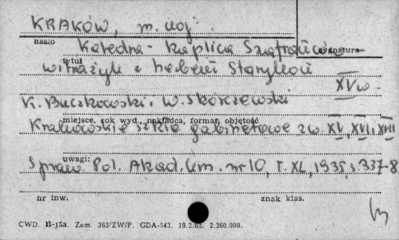 KRAKÓW, m. woj.
hasło
sygnatura
Katedra - kaplica Szafrańców
tytuł
witrażyk z herbem Starykoń
XV w.
K. Buczkowski i W. Skórzewski
Krakowskie szkła gabinetowe z w. XV, XVI, XVII
miejsce, rok wyd., nakładca, format, objętość
uwagi:
Spraw. Pol. Akad. Um. nr 10, T. XL, 1935, s. 337-8
nr inw.
znak klas.
CWD. II-j5a. Zam. 363/ZW/P. GDA-543. 19.2.63. 2.260.000.